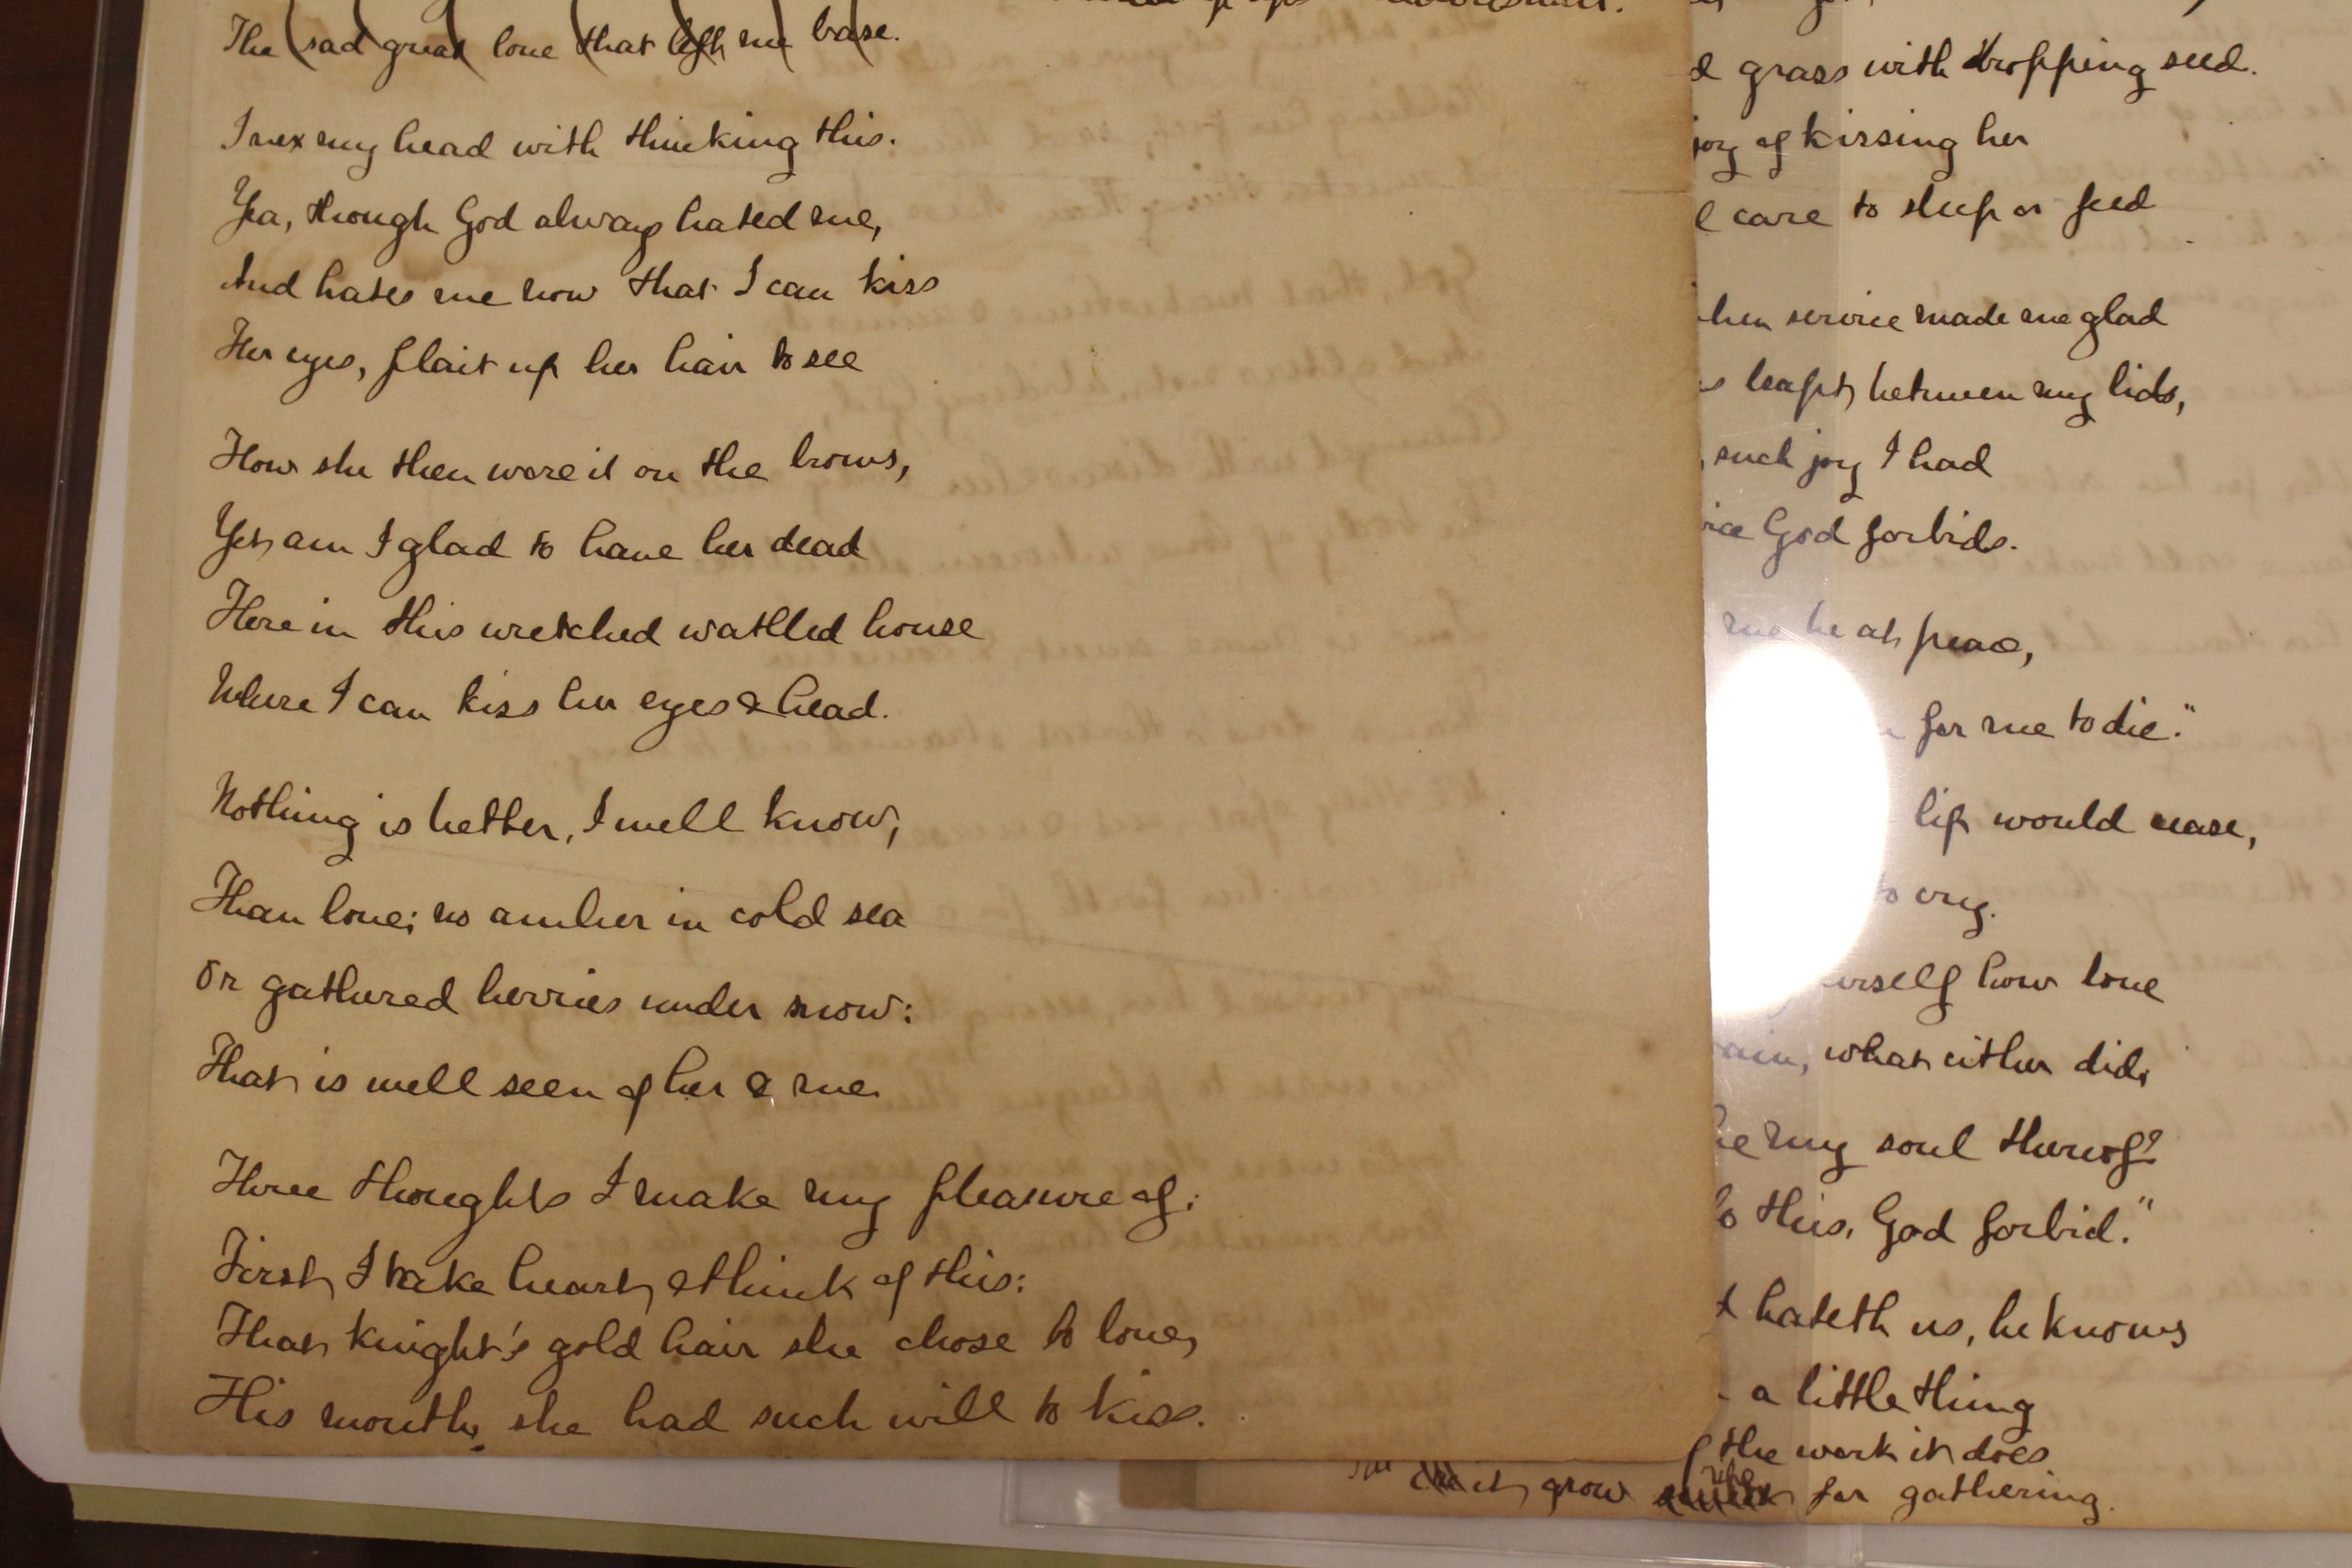 The sad great love that left me base.
I vex my head with thinking this.
Yea, though God always hated me,
And hates me now that I can kiss
Her eyes, plait up her hair to see
How she then wore it on the brows,
Yet am I glad to have her dead
Here in this wretched wattled house
Where I can kiss her eyes & head.
Nothing is better, I well know,
Than love; no amber in cold sea
Or gathered berries under snow:
That is well seen of her & me.
Three thoughts I make my pleasure of:
First I take heart & think of this:
That knight's gold hair she chose to love,
His mouth, she had such will to kiss.
grass with dropping seed.
joy of kissing her
care to sleep or feed
service made me glad
leapt between my lids,
such joy I had
God forbids.
me be at peace,
for me to die."
life would cease,
to cry.
how love
what either did,
my soul thereof?
this, God forbid."
hateth us, he knows
a little thing
the work it does
it grow for gathering.